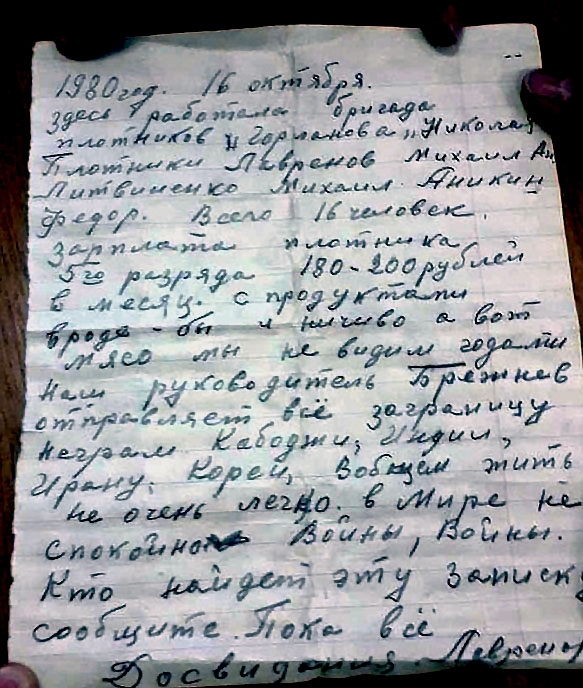 1980 год. 16 октября.
здесь работала бригада
плотников "Горланова" Николая
Плотники Лавренов Михаил Ан.
Литвиненко Михаил. Аникин
Федор. Всего 16 человек.
Зарплата плотника
5го разряда 180-200 рублей
в месяц. С продуктами
вроде-бы и ничиво а вот
мясо мы не видим годами
Наш руководитель Брежнев
отправляет всё заграницу
неграм Кабоджи, Индии,
Ирану. Кореи, Вобщем жить
не очень легко. в Мире не
спокойно Войны, Войны.
Кто найдет эту Записку
сообщите. Пока всё
Досвидания. Лавренов